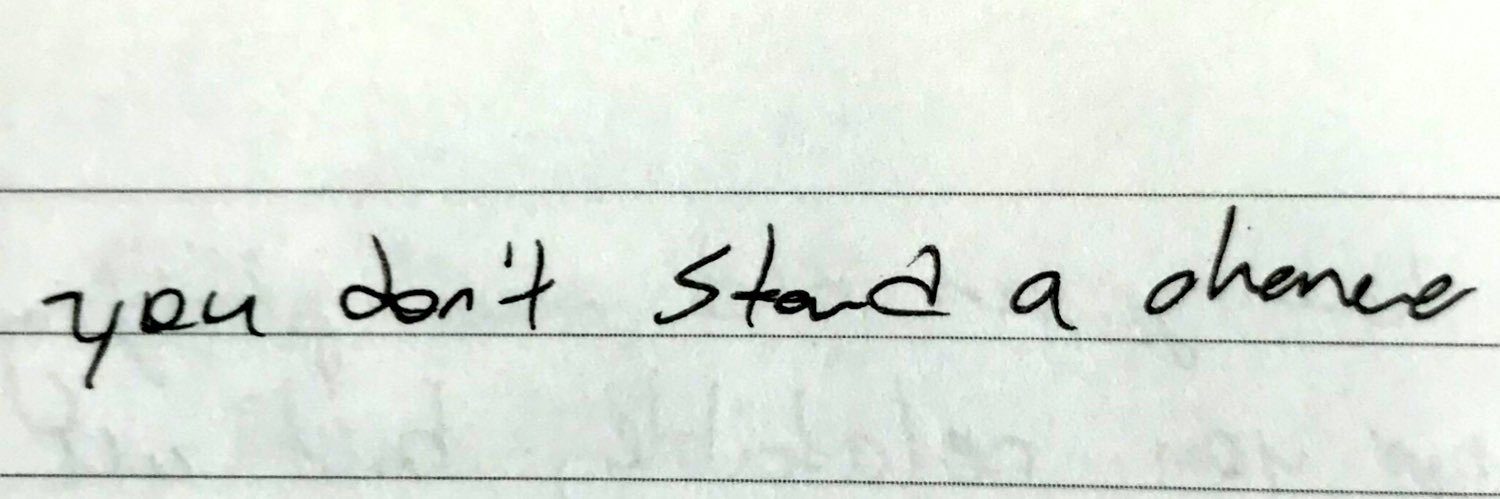 you don't stand a chance